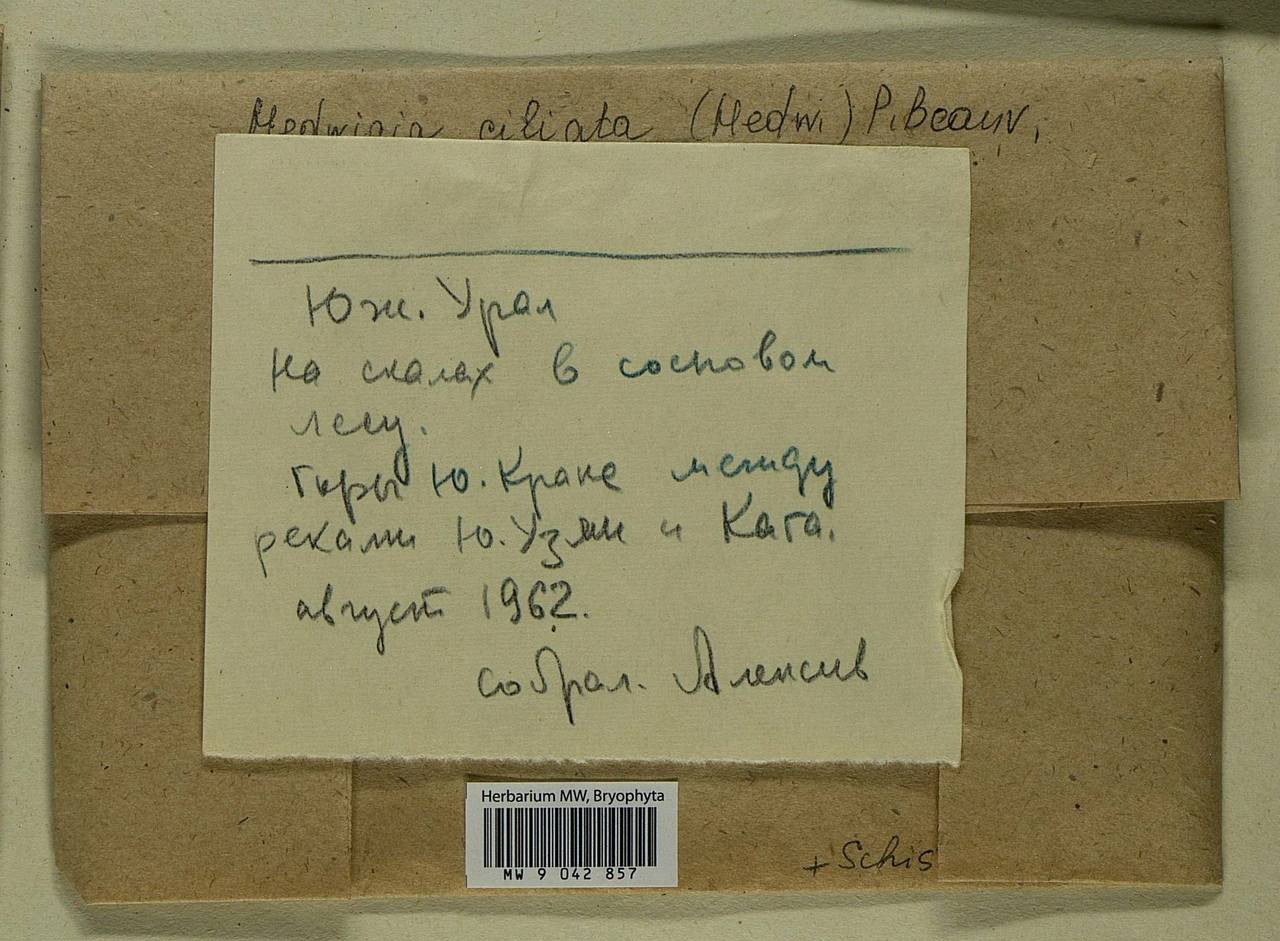 Hedwigia ciliata (Hedw.) P. Beauv.
Юж. Урал
На скалах в сосновом
лесу.
Горы Ю. Крака между
реками Ю. Узян и Кага.
август 1962.
собрал. Алексеев
Herbarium MW, Bryophyta
MW 9 042 857
+ Schis